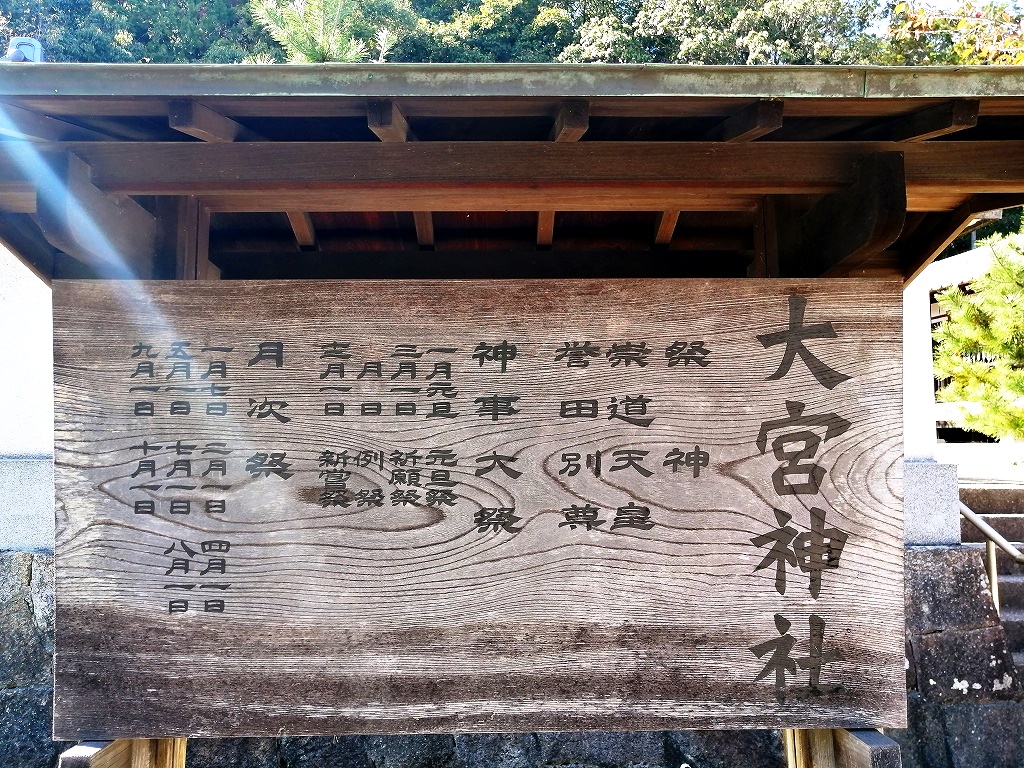 大宮神社
祭神
崇道天皇
誉田別尊
神事大祭
一月元旦 元旦祭
三月一日 祈願祭
月 日 例祭
十二月一日 新嘗祭
月次祭
一月七日 二月一日 四月一日
五月一日 七月一日 八月一日
九月一日 十月一日